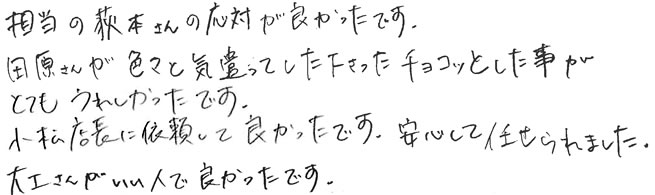 相当の荻本さんの応対が良かったです.
田原さんが色々と気遣ってした下さったチョコッとした事が
とてもうれしかったです.
小松店長に依頼して良かったです. 安心して任せられました.
大工さんがいい人で良かったです.